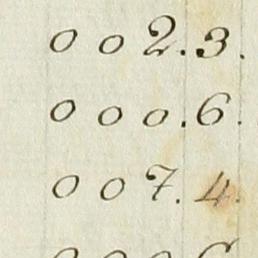 0 0 2.3.
0 0 0.6.
0 0 7.4.